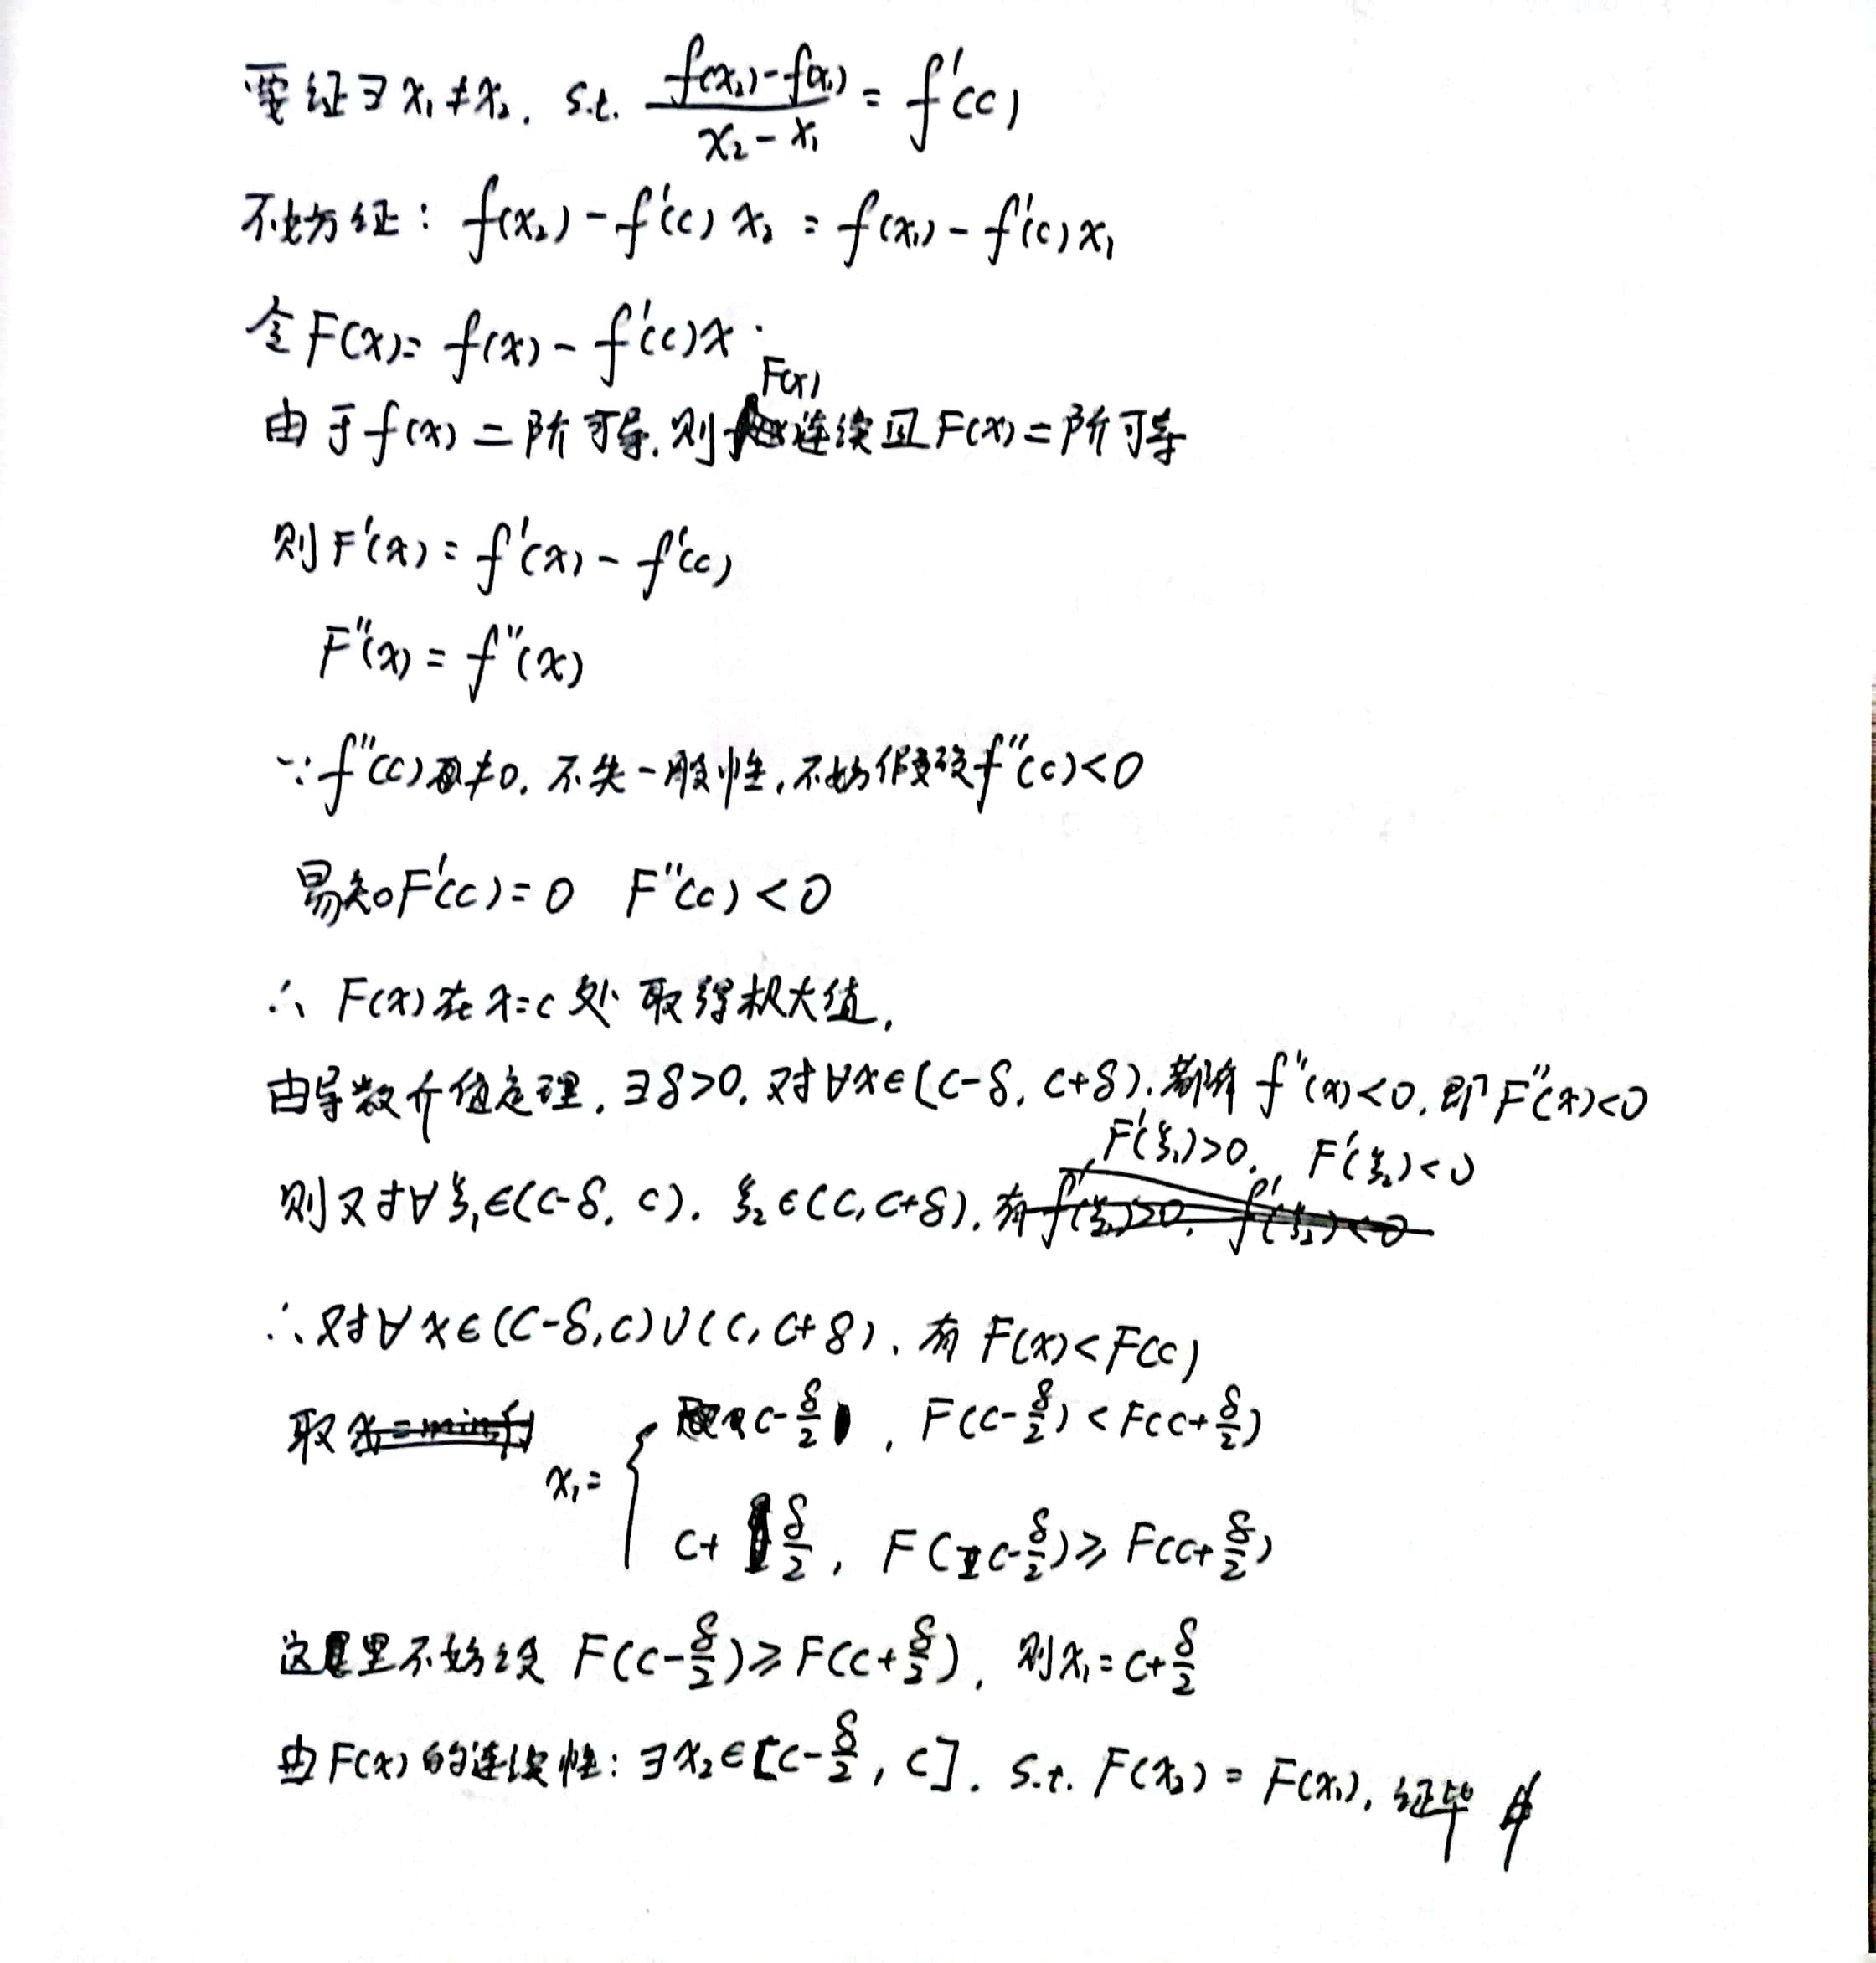 要证∃x₁≠x₂, s.t. (f(x₂)-f(x₁))/(x₂-x₁) = f'(c)
不妨证: f(x₂)-f'(c)x₂ = f(x₁)-f'(c)x₁
令F(x)=f(x)-f'(c)x.
由于f(x)二阶可导,则F(x)连续且F(x)二阶可导
则F'(x)=f'(x)-f'(c)
F''(x)=f''(x)
∵f''(c)≠0.不失一般性,不妨假设f''(c)<0
易知F'(c)=0 F''(c)<0
∴ F(x)在x=c处取得极大值,
由导数介值定理,∃δ>0,对∀x∈(c-δ, c+δ),都有f''(x)<0,即F''(x)<0
则又对∀ξ₁∈(c-δ, c), ξ₂∈(c, c+δ),有F'(ξ₁)>0, F'(ξ₂)<0
∴对∀x∈(c-δ,c)∪(c, c+δ),有F(x)<F(c)
取 x₁= { c-δ/2, F(c-δ/2)<F(c+δ/2)
c+δ/2, F(c-δ/2)≥F(c+δ/2)
这里不妨设 F(c-δ/2)≥F(c+δ/2), 则x₁=c+δ/2
由F(x)的连续性:∃x₂∈[c-δ/2, c], s.t. F(x₂)=F(x₁),证毕